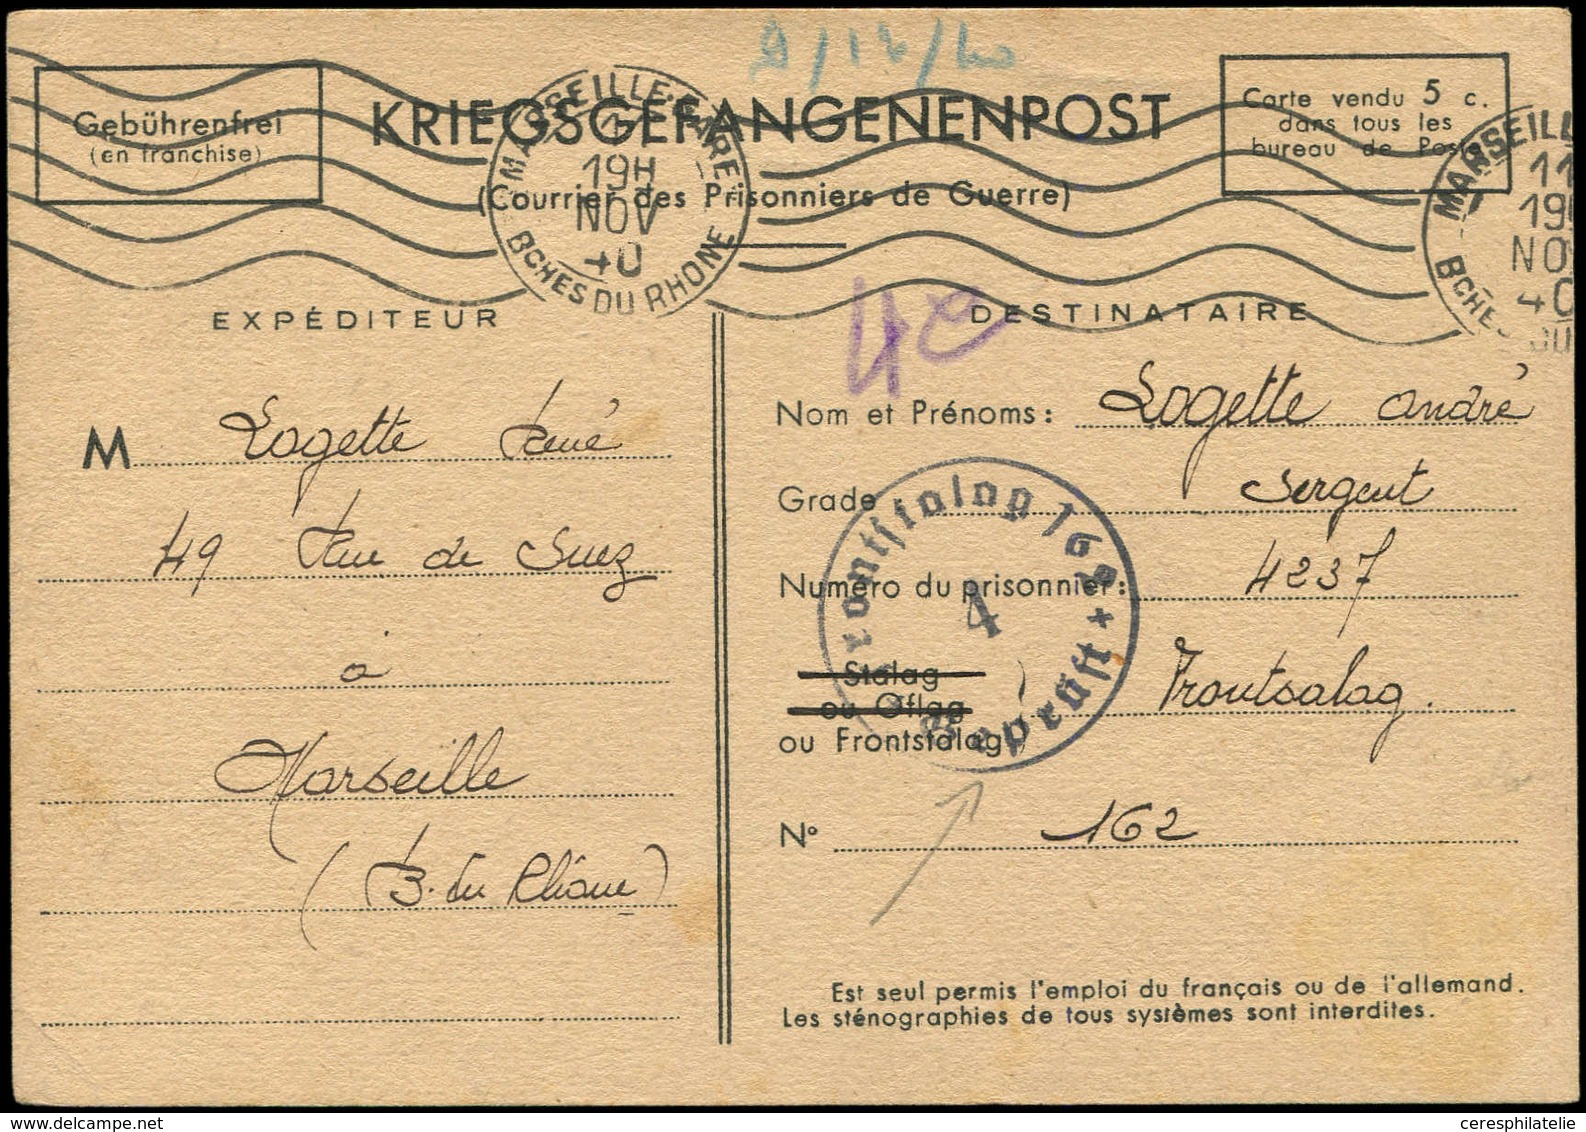 9/12/40
Gebührenfrei
(en franchise)
KRIEGSGEFANGENENPOST
(Courrier des Prisonniers de Guerre)
Carte vendu 5 c.
dans tous les
bureau de Poste
MARSEILLE-GARE
11
19H
NOV
40
BCHES DU RHONE
MARSEILL
11
19
NOV
40
BCHES DU
EXPÉDITEUR
M Logette René
49 Rue de Suez
à
Marseille
(B. du Rhône)
40
DESTINATAIRE
Nom et Prénoms: Logette André
Grade Sergent
Numéro du prisonnier: 4237
Stalag
ou Oflag
ou Frontstalag Frontsalag.
N° 162
Frontstalag 162
4
Geprüft
Est seul permis l'emploi du français ou de l'allemand.
Les sténographies de tous systèmes sont interdites.
delcampe.net
ceresphilatelie